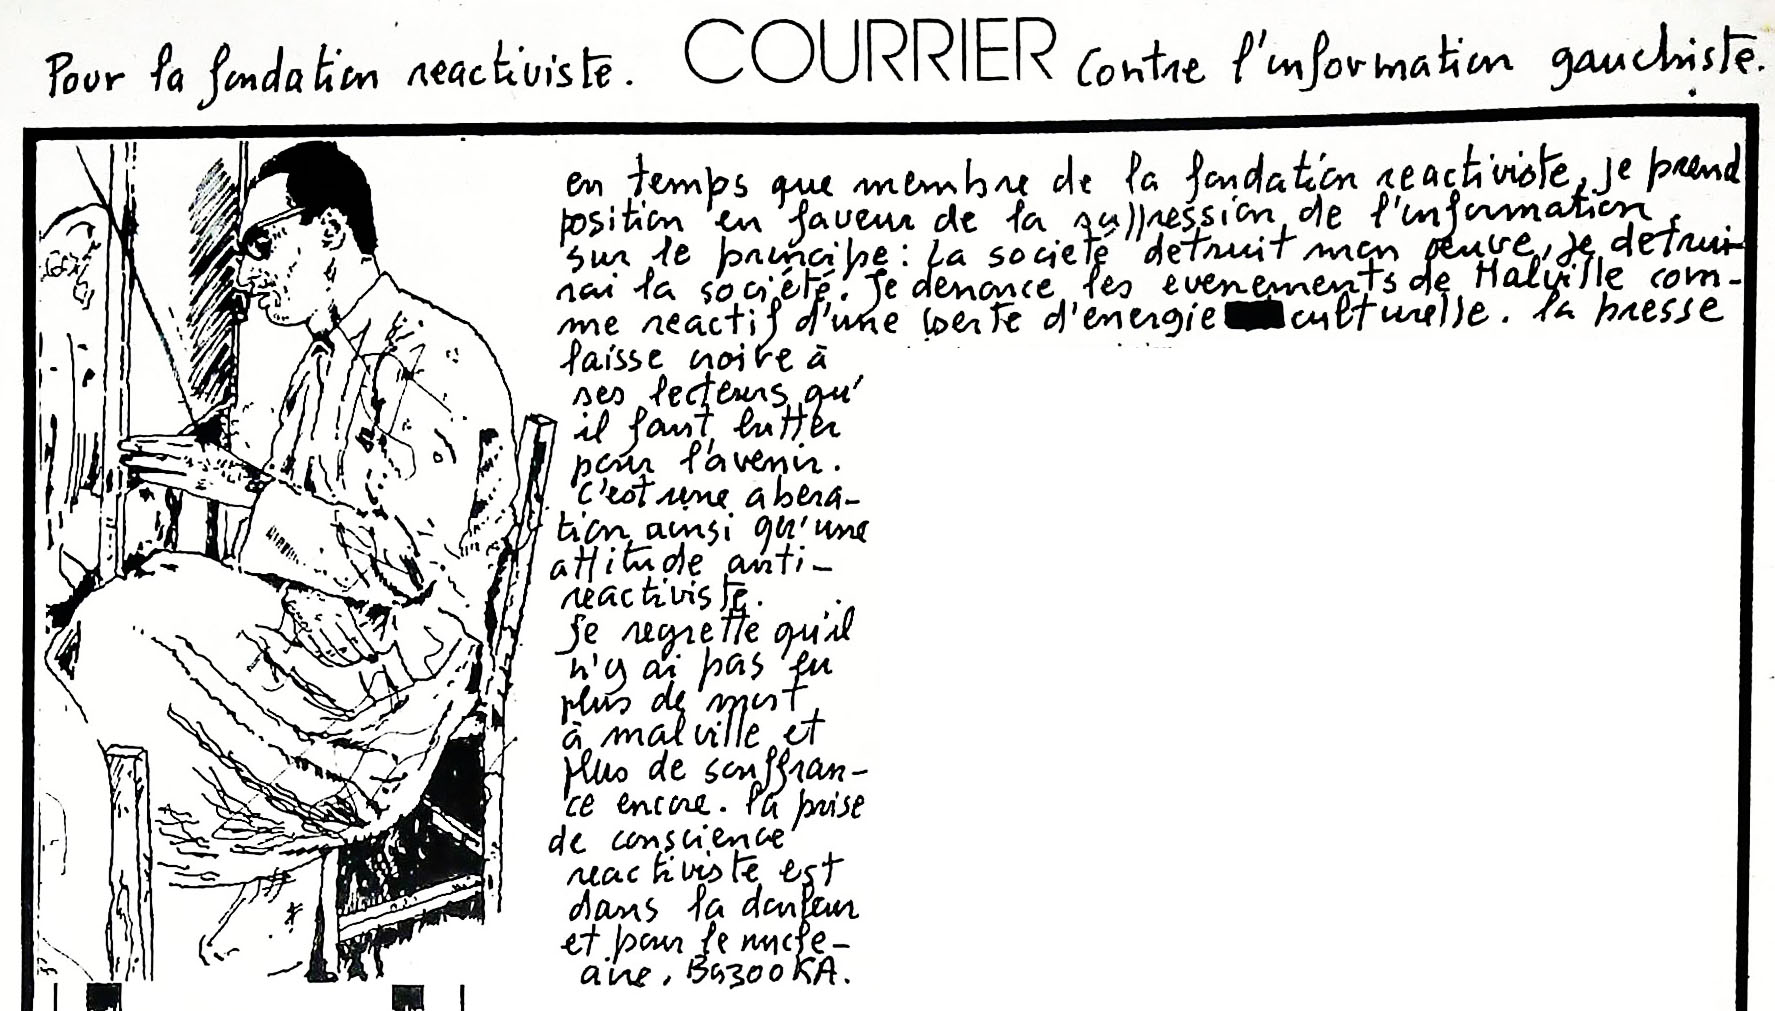 Pour la fondation reactiviste. COURRIER Contre l'information gauchiste.
en temps que membre de la fondation reactiviste, je prend
position en faveur de la suppression de l'information,
sur le principe : la societé detruit mon oeuvre, je detrui-
rai la société. Je denonce les evenements de Malville com-
me reactif d'une perte d'energie culturelle. la presse
laisse croire à
ses lecteurs qu'
il faut lutter
pour l'avenir.
C'est une abera-
tion ainsi qu'une
attitude anti-
reactiviste.
Je regrette qu'il
n'y ai pas eu
plus de mort
à malville et
plus de souffran-
ce encore. la prise
de conscience
reactiviste est
dans la douleur
et pour le nucle-
aire. BAZOOKA.